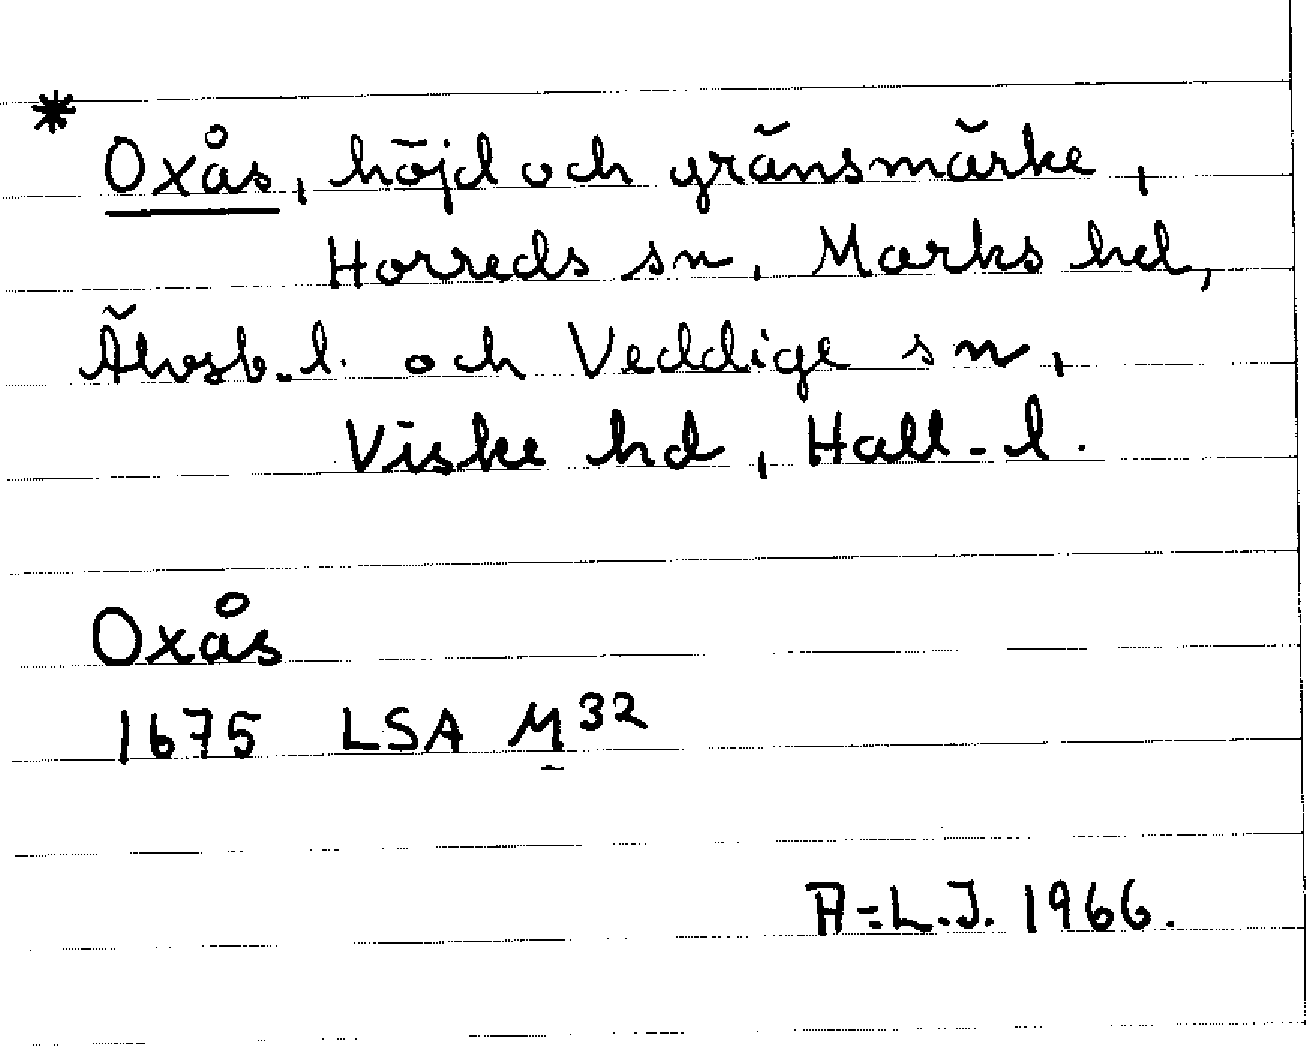 * Oxås, höjd och gränsmärke,
Horreds sn, Marks hd,
Älvsb. l. och Veddige sn,
Viske hd, Hall. l.
Oxås
1675 LSA M³²
A-L.J. 1966.